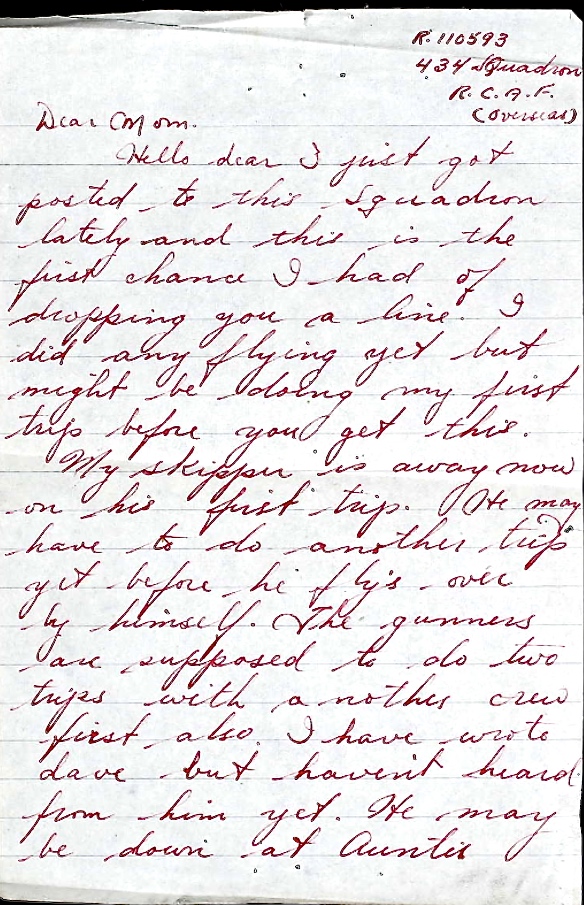 R.110593
434 Squadron
R.C.A.F.
(Overseas)
Dear Mom.
Hello dear I just got
posted to this Squadron
lately and this is the
first chance I had of
dropping you a line. I
did any flying yet but
might be doing my first
trip before you get this.
My skipper is away now
on his first trip. He may
have to do another trip
yet before he fly's over
by himself. The gunners
are supposed to do two
trips with another crew
first also. I have wrote
dave but haven't heard
from him yet. He may
be down at Aunties